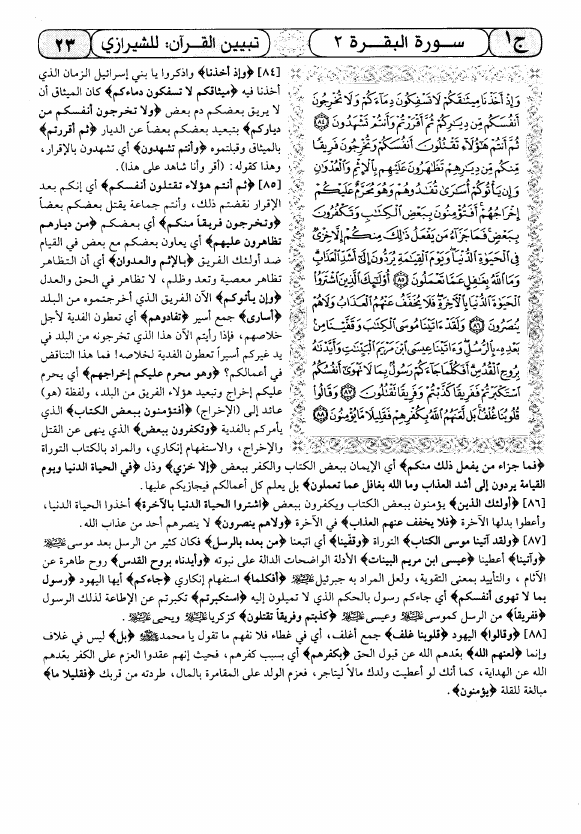 ج ١
سورة البقرة ٢
تبيين القرآن: للشيرازي
٢٣
وَإِذْ أَخَذْنَا مِيثَاقَكُمْ لَا تَسْفِكُونَ دِمَاءَكُمْ وَلَا تُخْرِجُونَ
أَنفُسَكُم مِّن دِيَارِكُمْ ثُمَّ أَقْرَرْتُمْ وَأَنتُمْ تَشْهَدُونَ ٨٤
ثُمَّ أَنتُمْ هَٰؤُلَاءِ تَقْتُلُونَ أَنفُسَكُمْ وَتُخْرِجُونَ فَرِيقًا
مِّنكُم مِّن دِيَارِهِمْ تَظَاهَرُونَ عَلَيْهِم بِالْإِثْمِ وَالْعُدْوَانِ
وَإِن يَأْتُوكُمْ أُسَارَىٰ تُفَادُوهُمْ وَهُوَ مُحَرَّمٌ عَلَيْكُمْ
إِخْرَاجُهُمْ أَفَتُؤْمِنُونَ بِبَعْضِ الْكِتَابِ وَتَكْفُرُونَ
بِبَعْضٍ فَمَا جَزَاءُ مَن يَفْعَلُ ذَٰلِكَ مِنكُمْ إِلَّا خِزْيٌ
فِي الْحَيَاةِ الدُّنْيَا وَيَوْمَ الْقِيَامَةِ يُرَدُّونَ إِلَىٰ أَشَدِّ الْعَذَابِ
وَمَا اللَّهُ بِغَافِلٍ عَمَّا تَعْمَلُونَ ٨٥ أُولَٰئِكَ الَّذِينَ اشْتَرَوُا
الْحَيَاةَ الدُّنْيَا بِالْآخِرَةِ فَلَا يُخَفَّفُ عَنْهُمُ الْعَذَابُ وَلَا هُمْ
يُنصَرُونَ ٨٦ وَلَقَدْ آتَيْنَا مُوسَى الْكِتَابَ وَقَفَّيْنَا مِن
بَعْدِهِ بِالرُّسُلِ وَآتَيْنَا عِيسَى ابْنَ مَرْيَمَ الْبَيِّنَاتِ وَأَيَّدْنَاهُ
بِرُوحِ الْقُدُسِ أَفَكُلَّمَا جَاءَكُمْ رَسُولٌ بِمَا لَا تَهْوَىٰ أَنفُسُكُمُ
اسْتَكْبَرْتُمْ فَفَرِيقًا كَذَّبْتُمْ وَفَرِيقًا تَقْتُلُونَ ٨٧ وَقَالُوا
قُلُوبُنَا غُلْفٌ بَل لَّعَنَهُمُ اللَّهُ بِكُفْرِهِمْ فَقَلِيلًا مَّا يُؤْمِنُونَ ٨٨
[٨٤] ﴿وإذ أخذنا﴾ واذكروا يا بني إسرائيل الزمان الذي
أخذنا فيه ﴿ميثاقكم لا تسفكون دماءكم﴾ كان الميثاق أن
لا يريق بعضكم دم بعض ﴿ولا تخرجون أنفسكم من
دياركم﴾ بتبعيد بعضكم بعضاً عن الديار ﴿ثم أقررتم﴾
بالميثاق وقبلتموه ﴿وأنتم تشهدون﴾ أي تشهدون بالإقرار،
وهذا كقوله: (أقر وأنا شاهد على هذا).
[٨٥] ﴿ثم أنتم هؤلاء تقتلون أنفسكم﴾ أي إنكم بعد
الإقرار نقضتم ذلك، وأنتم جماعة يقتل بعضكم بعضاً
﴿وتخرجون فريقاً منكم﴾ أي بعضكم ﴿من ديارهم
تظاهرون عليهم﴾ أي يعاون بعضكم مع بعض في القيام
ضد أولئك الفريق ﴿بالإثم والعدوان﴾ أي أن التظاهر
تظاهر معصية وتعد وظلم، لا تظاهر في الحق والعدل
﴿وإن يأتوكم﴾ الآن الفريق الذي أخرجتموه من البلد
﴿أسارى﴾ جمع أسير ﴿تفادوهم﴾ أي تعطون الفدية لأجل
خلاصهم، فإذا رأيتم الآن هذا الذي تخرجونه من البلد في
يد غيركم أسيراً تعطون الفدية لخلاصه! فما هذا التناقض
في أعمالكم؟ ﴿وهو محرم عليكم إخراجهم﴾ أي يحرم
عليكم إخراج وتبعيد هؤلاء الفريق من البلد، ولفظة (هو)
عائد إلى (الإخراج) ﴿أفتؤمنون ببعض الكتاب﴾ الذي
يأمركم بالفدية ﴿وتكفرون ببعض﴾ الذي ينهى عن القتل
والإخراج، والاستفهام إنكاري، والمراد بالكتاب التوراة
﴿فما جزاء من يفعل ذلك منكم﴾ أي الإيمان ببعض الكتاب والكفر ببعض ﴿إلا خزي﴾ وذل ﴿في الحياة الدنيا ويوم
القيامة يردون إلى أشد العذاب وما الله بغافل عما تعملون﴾ بل يعلم كل أعمالكم فيجازيكم عليها.
[٨٦] ﴿أولئك الذين﴾ يؤمنون ببعض الكتاب ويكفرون ببعض ﴿اشتروا الحياة الدنيا بالآخرة﴾ أخذوا الحياة الدنيا،
وأعطوا بدلها الآخرة ﴿فلا يخفف عنهم العذاب﴾ في الآخرة ﴿ولا هم ينصرون﴾ لا ينصرهم أحد من عذاب الله.
[٨٧] ﴿ولقد آتينا موسى الكتاب﴾ التوراة ﴿وقفينا﴾ أي اتبعنا ﴿من بعده بالرسل﴾ فكان كثير من الرسل بعد موسى
﴿وآتينا﴾ أعطينا ﴿عيسى ابن مريم البينات﴾ الأدلة الواضحات الدالة على نبوته ﴿وأيدناه بروح القدس﴾ روح طاهرة عن
الآثام ، والتأييد بمعنى التقوية، ولعل المراد به جبرئيل ﴿أفكلما﴾ استفهام إنكاري ﴿جاءكم﴾ أيها اليهود ﴿رسول
بما لا تهوى أنفسكم﴾ أي جاءكم رسول بالحكم الذي لا تميلون إليه ﴿استكبرتم﴾ تكبرتم عن الإطاعة لذلك الرسول
﴿ففريقاً﴾ من الرسل كموسى وعيسى ﴿كذبتم وفريقاً تقتلون﴾ كزكريا ويحيى .
[٨٨] ﴿وقالوا﴾ اليهود ﴿قلوبنا غلف﴾ جمع أغلف، أي في غطاء فلا نفهم ما تقول يا محمد ﴿بل﴾ ليس في غلاف
وإنما ﴿لعنهم الله﴾ بعدهم الله عن قبول الحق ﴿بكفرهم﴾ أي بسبب كفرهم، فحيث إنهم عقدوا العزم على الكفر بعدهم
الله عن الهداية، كما أنك لو أعطيت ولدك مالاً ليتاجر، فعزم الولد على المقامرة بالمال، طردته من قربك ﴿فقليلا ما﴾
مبالغة للقلة ﴿يؤمنون﴾.